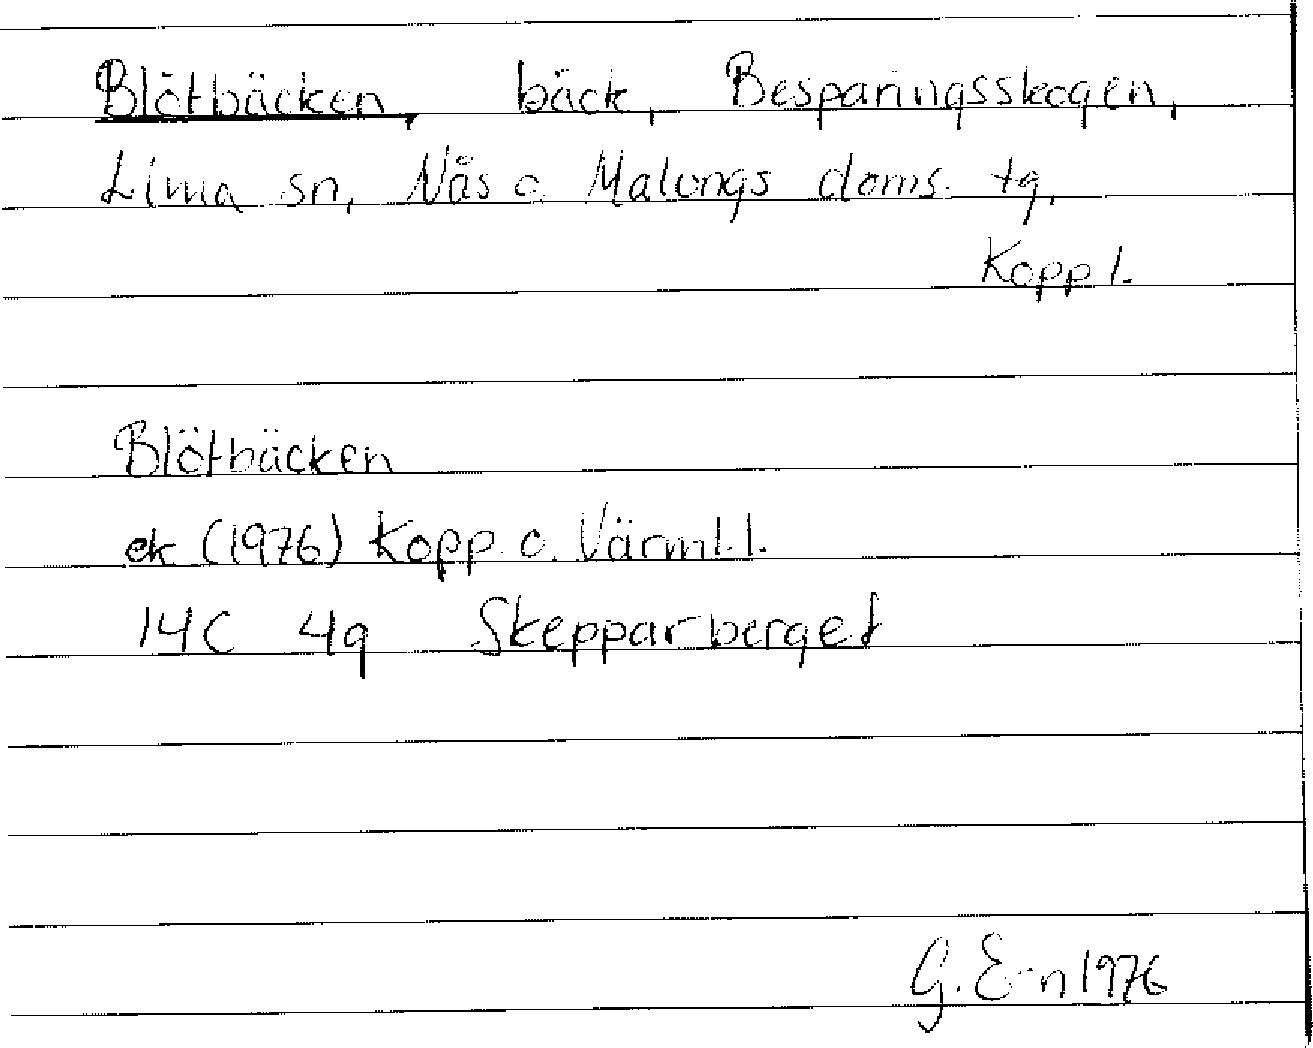 Blötbäcken, bäck, Besparingsskogen,
Lima sn, Nås o. Malungs doms. tg,
Kopp l.
Blötbäcken
ek (1976) Kopp. o. Värml. l.
14C 4g Skepparberget
G. E-n 1976